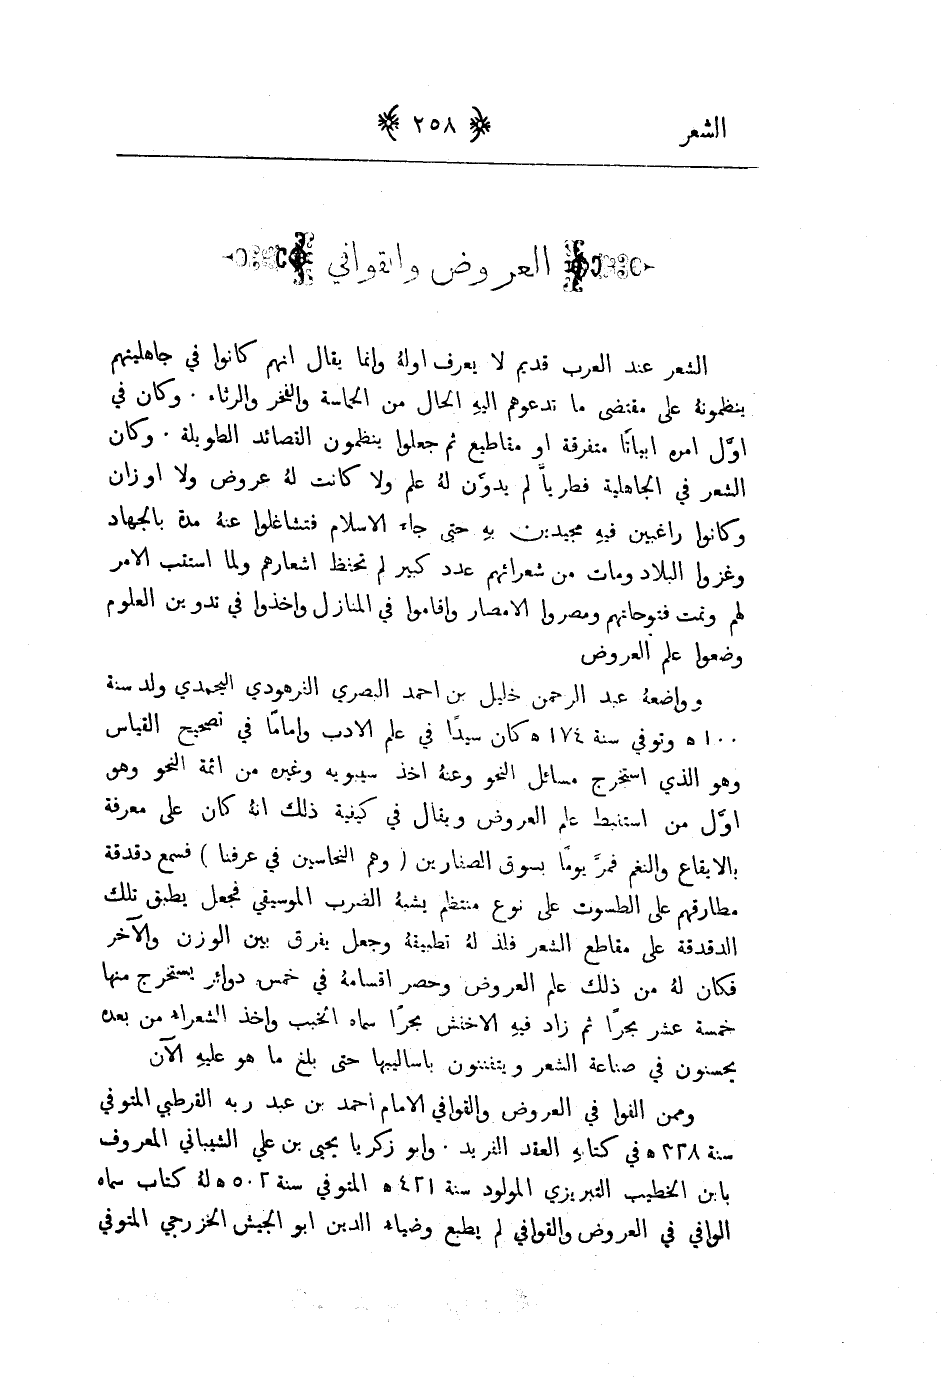 الشعر ﴿ ٢٥٨ ﴾
العروض والقوافي
الشعر عند العرب قديم لا يعرف اولهُ وانما يقال انهم كانوا في جاهليتهم
ينظمونهُ على مقتضى ما تدعوهم اليهِ الحال من الحماسة والفخر والرثاء . وكان في
اوَّل امره ابياتًا متفرقة او مقاطيع ثم جعلوا ينظمون القصائد الطويلة . وكان
الشعر في الجاهلية فطرياً لم يدوَّن لهُ علم ولا كانت لهُ عروض ولا اوزان
وكانوا راغبين فيهِ مجيدين بهِ حتى جاء الاسلام فتشاغلوا عنهُ مدة بالجهاد
وغزوا البلاد ومات من شعرائهم عدد كبير لم تحفظ اشعارهم ولما استتب الامر
لهم وتمت فتوحاتهم ومصروا الامصار واقاموا في المنازل واخذوا في تدوين العلوم
وضعوا علم العروض
وواضعهُ عبد الرحمن خليل بن احمد البصري الفرهودي اليحمدي ولد سنة
١٠٠ ه وتوفي سنة ١٧٤ ه كان سيدًا في علم الادب وإمامًا في تصحيح القياس
وهو الذي استخرج مسائل النحو وعنهُ اخذ سيبويه وغيره من ائمة النحو وهو
اوَّل من استنبط علم العروض ويقال في كيفية ذلك انهُ كان على معرفة
بالايقاع والنغم فمرَّ يومًا بسوق الصفارين ( وهم النحاسين في عرفنا ) فسمع دقدقة
مطارقهم على الطسوت على نوع منتظم يشبهُ الضرب الموسيقي فجعل يطبق تلك
الدقدقة على مقاطع الشعر فلذ لهُ تطبيقهُ وجعل يفرق بين الوزن والآخر
فكان لهُ من ذلك علم العروض وحصر اقسامهُ في خمس دوائر يستخرج منها
خمسة عشر بحرًا ثم زاد فيهِ الاخفش بحرًا سماه الخبب واخذ الشعراء من بعده
يحسنون في صناعة الشعر ويتفننون باساليبها حتى بلغ ما هو عليهِ الآن
وممن الفوا في العروض والقوافي الامام أحمد بن عبد ربه القرطبي المتوفي
سنة ٣٢٨ ه في كتابهِ العقد الفريد . وابو زكريا يحيى بن علي الشيباني المعروف
بابن الخطيب التبريزي المولود سنة ٤٢١ ه المتوفي سنة ٥٠٢ ه لهُ كتاب سماه
الوافي في العروض والقوافي لم يطبع وضياء الدين ابو الجيش الخزرجي المتوفي